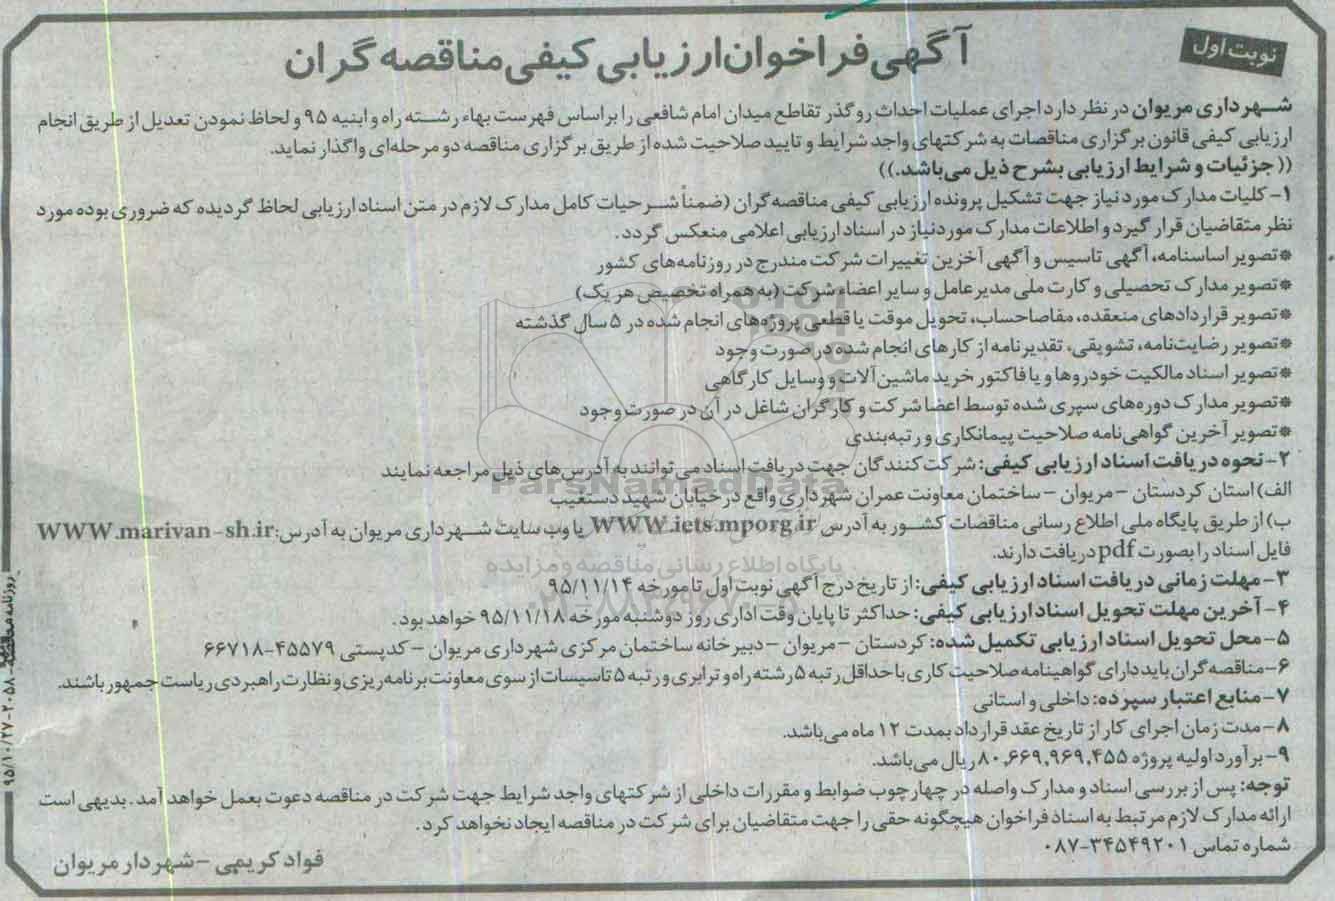 نوبت اول
آگهی فراخوان ارزیابی کیفی مناقصه گران
شهرداری مریوان در نظر دارد اجرای عملیات احداث روگذر تقاطع میدان امام شافعی را براساس فهرست بهاء رشته راه و ابنیه ۹۵ و لحاظ نمودن تعدیل از طریق انجام
ارزیابی کیفی قانون برگزاری مناقصات به شرکتهای واجد شرایط و تایید صلاحیت شده از طریق برگزاری مناقصه دو مرحله‌ای واگذار نماید.
((جزئیات و شرایط ارزیابی بشرح ذیل می‌باشد.))
۱- کلیات مدارک مورد نیاز جهت تشکیل پرونده ارزیابی کیفی مناقصه گران (ضمناً شرحیات کامل مدارک لازم در متن اسناد ارزیابی لحاظ گردیده که ضروری بوده مورد
نظر متقاضیان قرار گیرد و اطلاعات مدارک موردنیاز در اسناد ارزیابی اعلامی منعکس گردد.
*تصویر اساسنامه، آگهی تاسیس و آگهی آخرین تغییرات شرکت مندرج در روزنامه‌های کشور
*تصویر مدارک تحصیلی و کارت ملی مدیرعامل و سایر اعضاء شرکت (به همراه تخصیص هر یک)
*تصویر قراردادهای منعقده، مفاصاحساب، تحویل موقت یا قطعی پروژه‌های انجام شده در ۵ سال گذشته
*تصویر رضایت‌نامه، تشویقی، تقدیرنامه از کارهای انجام شده در صورت وجود
*تصویر اسناد مالکیت خودروها و یا فاکتور خرید ماشین‌آلات و وسایل کارگاهی
*تصویر مدارک دوره‌های سپری شده توسط اعضا شرکت و کارگران شاغل در آن در صورت وجود
*تصویر آخرین گواهی‌نامه صلاحیت پیمانکاری و رتبه‌بندی
۲- نحوه دریافت اسناد ارزیابی کیفی: شرکت کنندگان جهت دریافت اسناد می‌توانند به آدرس‌های ذیل مراجعه نمایند
ParsNamadData
الف) استان کردستان - مریوان - ساختمان معاونت عمران شهرداری واقع در خیابان شهید دستغیب
ب) از طریق پایگاه ملی اطلاع رسانی مناقصات کشور به آدرس WWW.iets.mporg.ir یا وب سایت شهرداری مریوان به آدرس: WWW.marivan-sh.ir
فایل اسناد را بصورت pdf دریافت دارند.
پایگاه اطلاع رسانی مناقصه و مزایده
۳- مهلت زمانی دریافت اسناد ارزیابی کیفی: از تاریخ درج آگهی نوبت اول تا مورخه ۹۵/۱۱/۱۴
۴- آخرین مهلت تحویل اسناد ارزیابی کیفی: حداکثر تا پایان وقت اداری روز دوشنبه مورخه ۹۵/۱۱/۱۸ خواهد بود.
۵- محل تحویل اسناد ارزیابی تکمیل شده: کردستان - مریوان - دبیرخانه ساختمان مرکزی شهرداری مریوان - کدپستی ۴۵۵۷۹-۶۶۷۱۸
۶- مناقصه گران باید دارای گواهینامه صلاحیت کاری با حداقل رتبه ۵ رشته راه و ترابری و رتبه ۵ تاسیسات از سوی معاونت برنامه ریزی و نظارت راهبردی ریاست جمهور باشند.
۷- منابع اعتبار سپرده: داخلی و استانی
۸- مدت زمان اجرای کار از تاریخ عقد قرارداد بمدت ۱۲ ماه می‌باشد.
۹- برآورد اولیه پروژه ۸۰,۶۶۹,۹۶۹,۴۵۵ ریال می‌باشد.
توجه: پس از بررسی اسناد و مدارک واصله در چهارچوب ضوابط و مقررات داخلی از شرکتهای واجد شرایط جهت شرکت در مناقصه دعوت بعمل خواهد آمد. بدیهی است
ارائه مدارک لازم مرتبط به اسناد فراخوان هیچگونه حقی را جهت متقاضیان برای شرکت در مناقصه ایجاد نخواهد کرد.
شماره تماس ۳۴۵۴۹۲۰۱-۰۸۷
فواد کریمی - شهردار مریوان
۹۵/۱۰/۲۷-۲۰۵۸